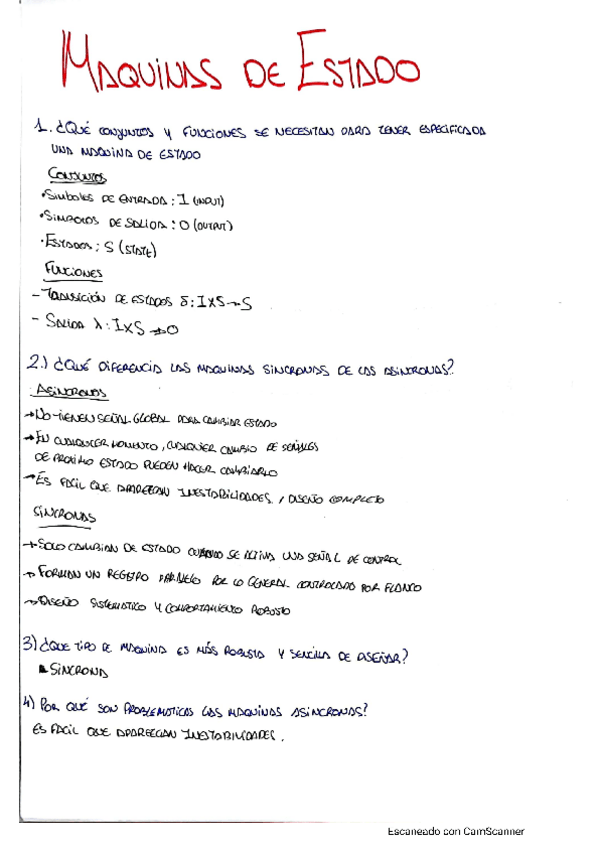 MAQUINAS DE ESTADO
1. ¿QUÉ CONJUNTOS Y FUNCIONES SE NECESITAN PARA TENER ESPECIFICADA
UNA MAQUINA DE ESTADO
CONJUNTOS
•SIMBOLOS DE ENTRADA: I (INPUT)
•SIMBOLOS DE SALIDA: O (OUTPUT)
•ESTADOS: S (STATE)
FUNCIONES
- TRANSICIÓN DE ESTADOS δ: I×S→S
- SALIDA λ: I×S→O
2.) ¿QUÉ DIFERENCIA LAS MAQUINAS SINCRONAS DE LAS ASINCRONAS?
ASINCRONAS
→NO TIENEN SEÑAL GLOBAL PARA CAMBIAR ESTADO
→EN CUALQUIER MOMENTO, CUALQUIER CAMBIO DE SEÑALES
DE PROXIMO ESTADO PUEDEN HACER CAMBIARLO
→ES FACIL QUE APAREZCAN INESTABILIDADES / DISEÑO COMPLETO
SÍNCRONAS
→SOLO CAMBIAN DE ESTADO CUANDO SE ACTIVA UNA SEÑAL DE CONTROL
→FORMAN UN REGISTRO PARALELO POR LO GENERAL CONTROLADO POR FLANCO
→DISEÑO SISTEMATICO Y COMPORTAMIENTO ROBUSTO
3) ¿QUE TIPO DE MAQUINA ES MÁS ROBUSTA Y SENCILLA DE DISEÑAR?
SÍNCRONA
4) POR QUÉ SON PROBLEMATICAS LAS MAQUINAS ASINCRONAS?
ES FACIL QUE APAREZCAN INESTABILIDADES.
Escaneado con CamScanner